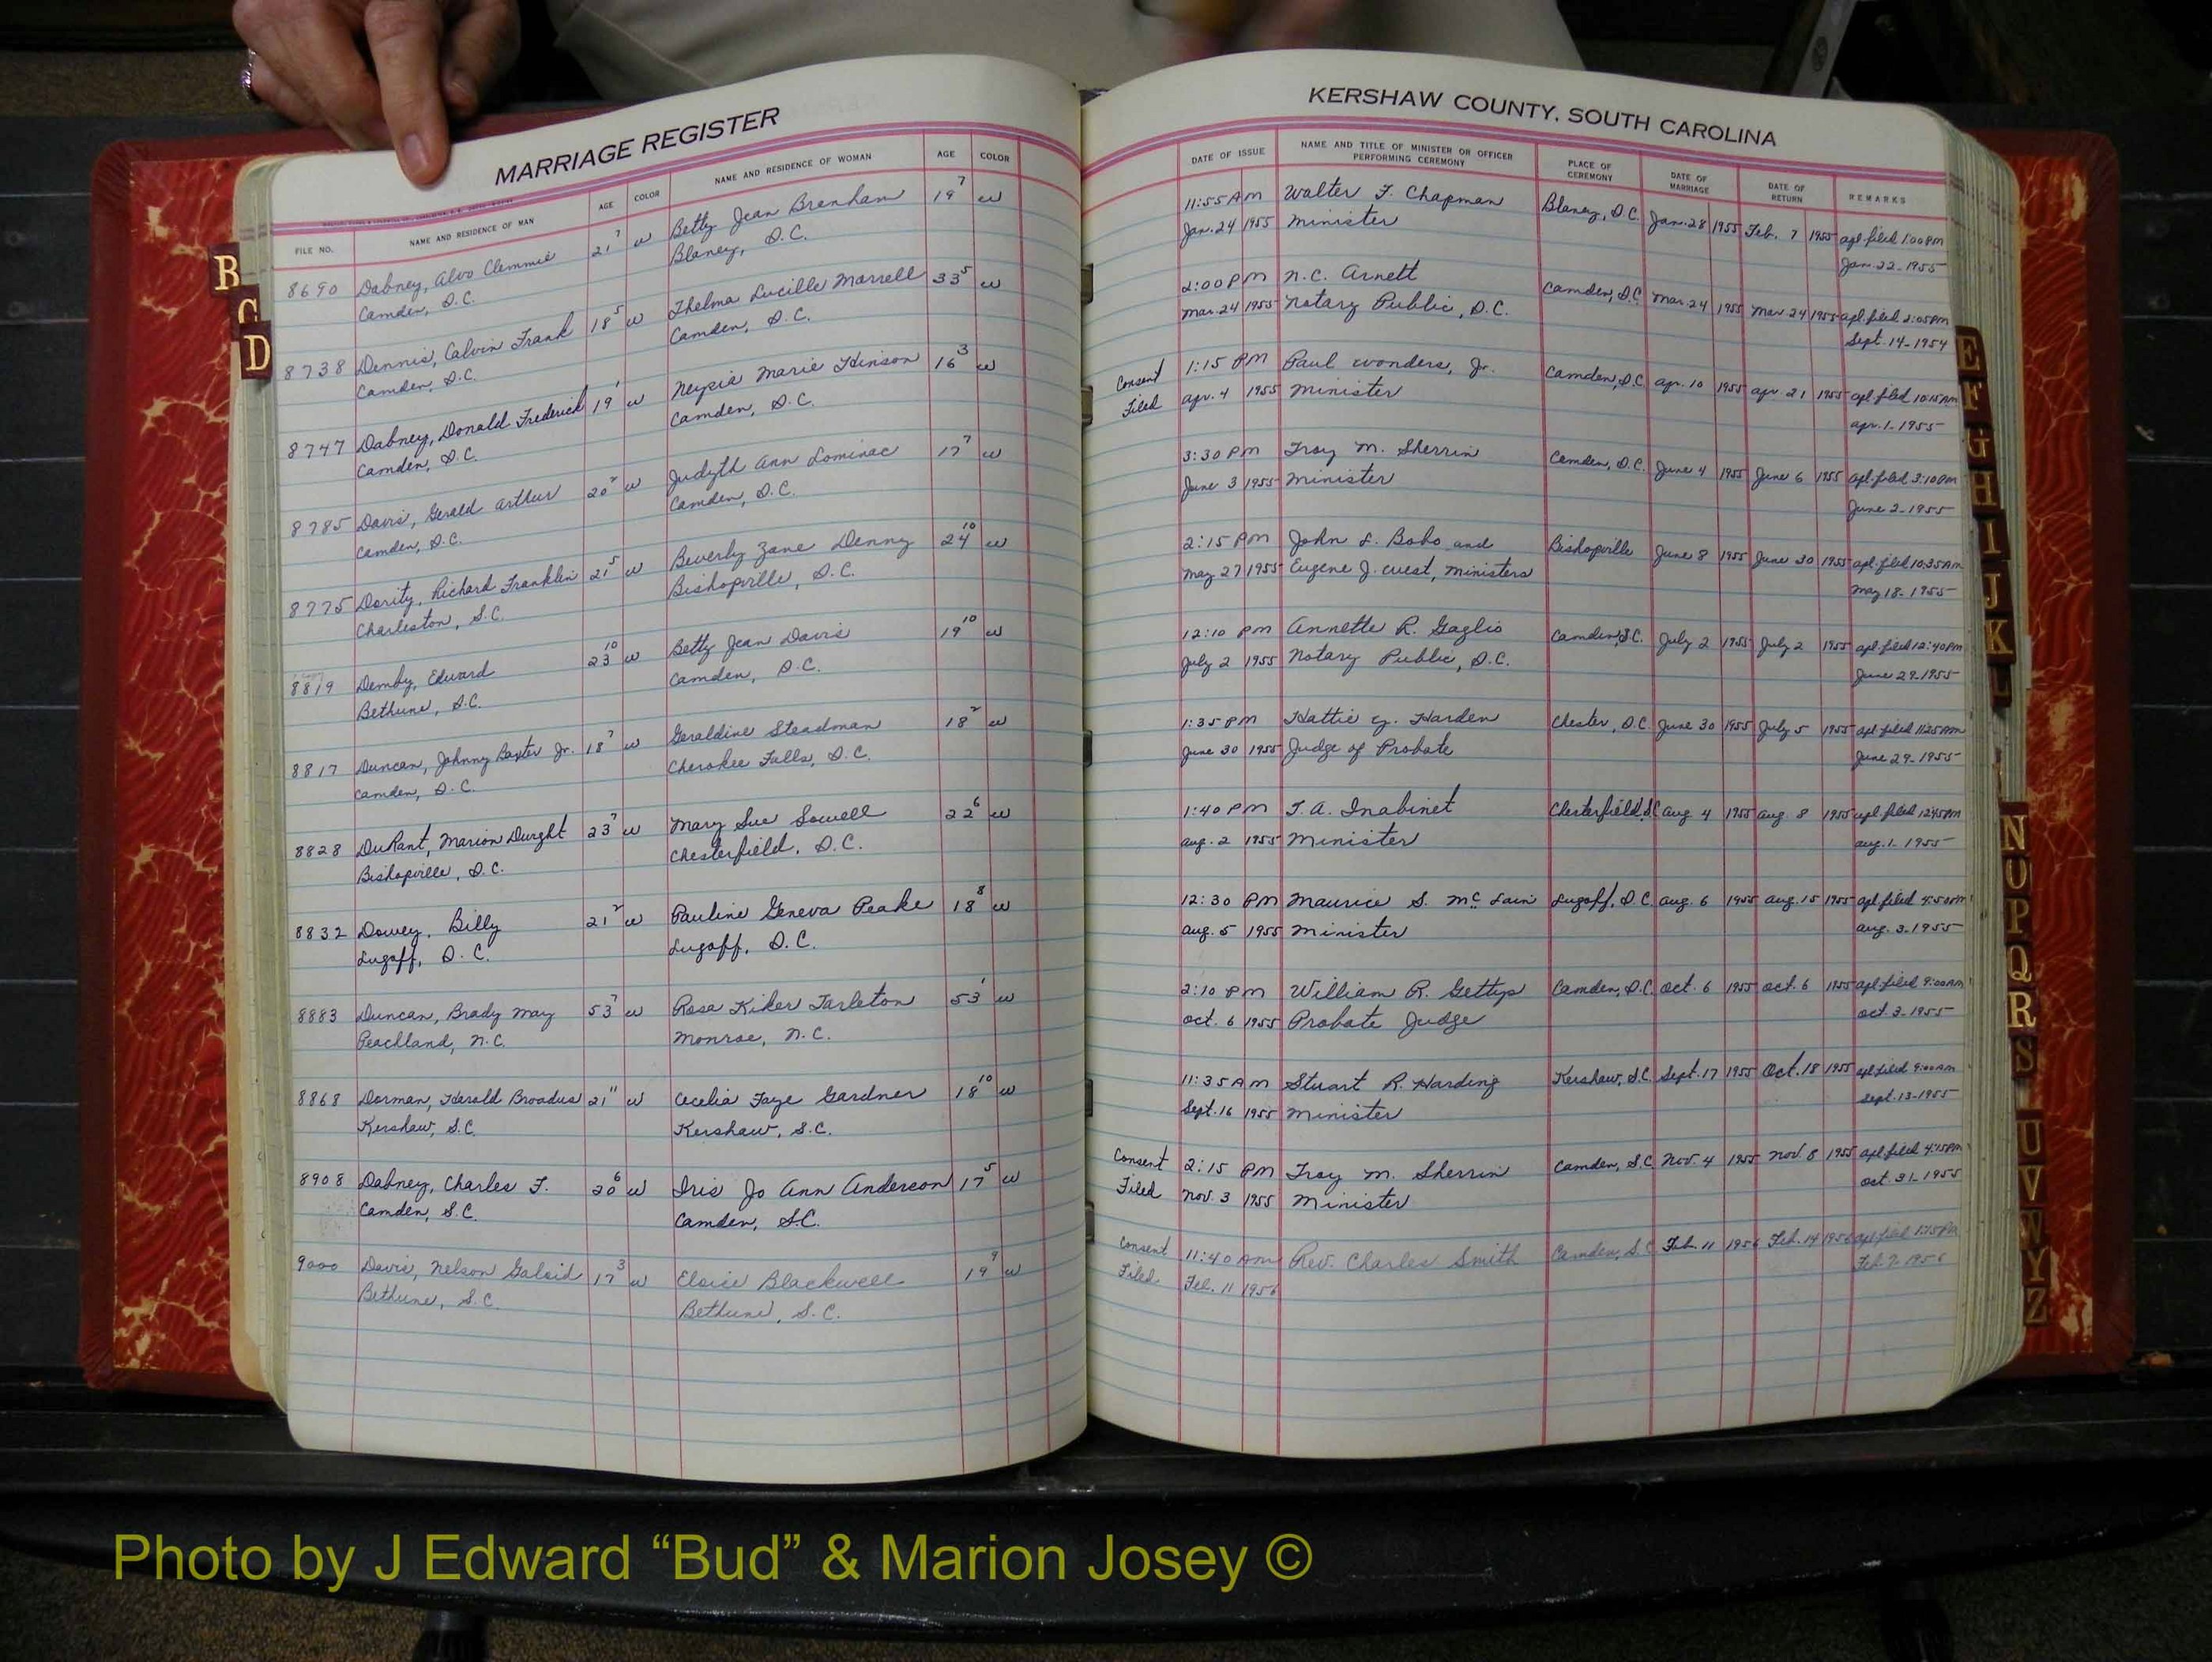 MARRIAGE REGISTER
FILE NO. NAME AND RESIDENCE OF MAN AGE COLOR NAME AND RESIDENCE OF WOMAN AGE COLOR
8690 Dabney, Alvo Clemmie 21 7 w Betty Jean Branham 19 7 w
Camden, S.C. Blaney, S.C.
8738 Dennis, Calvin Frank 18 5 w Thelma Lucille Marrell 33 5 w
Camden, S.C. Camden, S.C.
8747 Dabney, Donald Frederick 19 1 w Marie Hinson 16 3 w
Camden, S.C. Camden, S.C.
8785 Davis, Gerald Arthur 20 2 w Judyth Ann Lominac 17 7 w
Camden, S.C. Camden, S.C.
8775 Dority, Richard Franklin 21 5 w Beverly Zane Denny 24 10 w
Charleston, S.C. Bishopville, S.C.
8819 Demby, Edward 23 10 w Betty Jean Davis 19 10 w
Bethune, S.C. Camden, S.C.
8817 Duncan, Johnny Baxter Jr. 18 7 w Geraldine Steadman 18 2 w
Camden, S.C. Cherokee Falls, S.C.
8828 DuRant, Marion Dwight 23 7 w Mary Sue Sowell 22 6 w
Bishopville, S.C. Chesterfield, S.C.
8832 Dowey, Billy 21 2 w Pauline Geneva Peake 18 8 w
Lugoff, S.C. Lugoff, S.C.
8883 Duncan, Brady May 53 7 w Rosa Kiker Tarleton 53 1 w
Peachland, N.C. Monroe, N.C.
8868 Dorman, Harold Broadus 21 11 w Cecelia Faye Gardner 18 10 w
Kershaw, S.C. Kershaw, S.C.
8908 Dabney, Charles F. 20 6 w Iris Jo Ann Anderson 17 5 w
Camden, S.C. Camden, S.C.
9000 Davis, Nelson 17 3 w Eloise Blackwell 19 9 w
Bethune, S.C. Bethune, S.C.
KERSHAW COUNTY, SOUTH CAROLINA
DATE OF ISSUE NAME AND TITLE OF MINISTER OR OFFICER PERFORMING CEREMONY PLACE OF CEREMONY DATE OF MARRIAGE DATE OF RETURN REMARKS
11:55 AM Walter F. Chapman Blaney, S.C. Jan. 28 1955 Feb. 7 1955 apl. filed 1:00 PM
Jan. 24 1955 Minister Jan. 22-1955
2:00 PM N.C. Arnett Camden, S.C. Mar. 24 1955 Mar 24 1955 apl. filed 2:05 PM
Mar. 24 1955 Notary Public, S.C. Sept. 14-1954
Consent 1:15 PM Paul Wonders, Jr. Camden, S.C. Apr. 10 1955 Apr. 21 1955 apl. filed 10:15 AM
Filed Apr. 4 1955 Minister Apr. 1-1955
3:30 PM Troy M. Sherrin Camden, S.C. June 4 1955 June 6 1955 apl. filed 3:10 PM
June 3 1955 Minister June 2-1955
2:15 PM John L. Bobo and Bishopville June 8 1955 June 30 1955 apl. filed 10:35 AM
May 27 1955 Eugene J. West, Ministers May 18-1955
12:10 PM Annette R. Gaglio Camden, S.C. July 2 1955 July 2 1955 apl. filed 12:40 PM
July 2 1955 Notary Public, S.C. June 29-1955
1:35 PM Hattie Harden Chester, S.C. June 30 1955 July 5 1955 apl. filed 11:25 AM
June 30 1955 Judge of Probate June 29-1955
1:40 PM T.A. Inabinet Chesterfield, S.C. Aug 4 1955 Aug 8 1955 apl. filed 12:45 PM
Aug. 2 1955 Minister Aug. 1-1955
12:30 PM Maurice S. McLain Lugoff, S.C. Aug. 6 1955 Aug. 15 1955 apl. filed 4:50 PM
Aug. 5 1955 Minister Aug. 3-1955
2:10 PM William R. Gettys Camden, S.C. Oct. 6 1955 Oct. 6 1955 apl. filed 9:00 AM
Oct. 6 1955 Probate Judge Oct. 3-1955
11:35 AM Stuart R. Harding Kershaw, S.C. Sept. 17 1955 Oct. 18 1955 apl. filed 9:00 AM
Sept. 16 1955 Minister Sept. 13-1955
Consent 2:15 PM Troy M. Sherrin Camden, S.C. Nov. 4 1955 Nov. 8 1955 apl. filed 4:15 PM
Filed Nov. 3 1955 Minister Oct. 31-1955
Consent 11:40 AM Rev. Charles Smith Camden, S.C. Feb. 11 1956 Feb. 14 1956 apl. filed 1:15 PM
Filed Feb. 11 1956 Feb. 7-1956
B
C
D
E
F
G
H
I
J
K
L
N
O
P
Q
R
S
U
V
W
Y
Z
Photo by J Edward “Bud” & Marion Josey ©